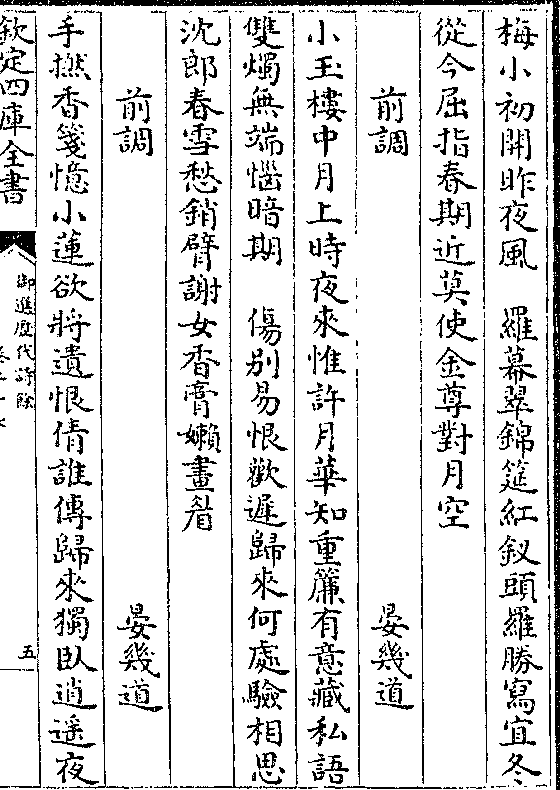 梅小初開昨夜風　羅幕翠錦筵紅釵頭羅勝寫宜冬
從今屈指春期近莫使金尊對月空
前調　晏幾道
小玉樓中月上時夜來惟許月華知重簾有意藏私語
雙燭無端惱暗期　傷別易恨歡遲歸來何處驗相思
沈郎春雪愁銷臂謝女香膏嬾畫眉
前調　晏幾道
手撚香箋憶小蓮欲將遺恨倩誰傳歸來獨臥逍遥夜
欽定四庫全書
御選歷代詩餘
五